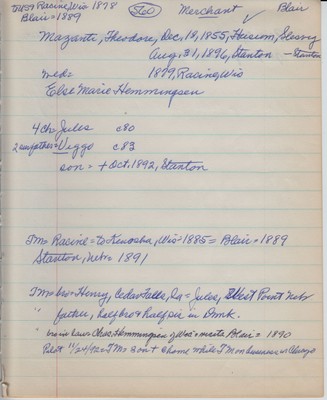 to US = Racine, Wis 1878 Sto Merchant Blair
Blair = 1889
Mazanti, Theodore, Dec. 18, 1855, Husum, Slesvig
Aug. 31, 1896, Stanton - Stanton
wed = 1879, Racine, Wis
Else Marie Hemmingsen
4 Ch = Jules c80
Viggo c83
son = + Oct. 1892, Stanton
TM = Racine = to Kenosha, Wis = 1885 = Blair = 1889
Stanton, Neb = 1891
TM = bro = Henry, Cedar Falls, Ia = Jules, West Point Neb
" father, half bro & half sis in Dmk.
" bro in law Chas. Hemmingsen of Wis = visits Blair = 1890
Pilot 11/24/92 = TM = son + @ home while TM on business in Chicago